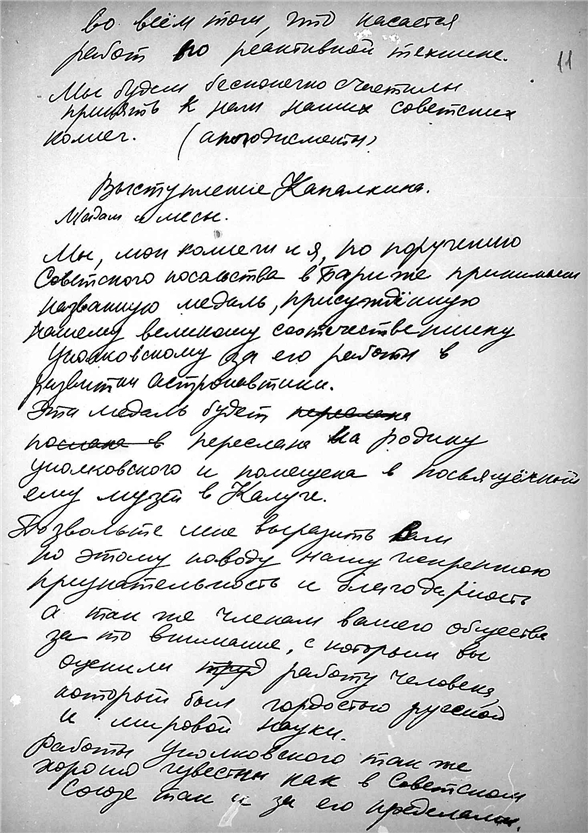 во всём том, что касается
работ по реактивной технике.
11
Мы будем бесконечно счастливы
принять к нам наших советских
коллег. (аплодисменты)
Выступление Капалкина.
Мадам и месье.
Мы, мои коллеги и я, по поручению
Советского посольства в Париже принимаем
названную медаль, присуждённую
нашему великому соотечественнику
Циолковскому за его работы в
развитии астронавтики.
Эта медаль будет переслана
послана в переслана на родину
Циолковского и помещена в посвящённый
ему музей в Калуге.
Позвольте мне выразить Вам
по этому поводу нашу искреннюю
признательность и благодарность
а так же членам вашего общества
за то внимание, с которым вы
оценили труд работу человека,
который был гордостью русской
и мировой науки.
Работы Циолковского так же
хорошо известны как в Советском
Союзе так и за его пределами.